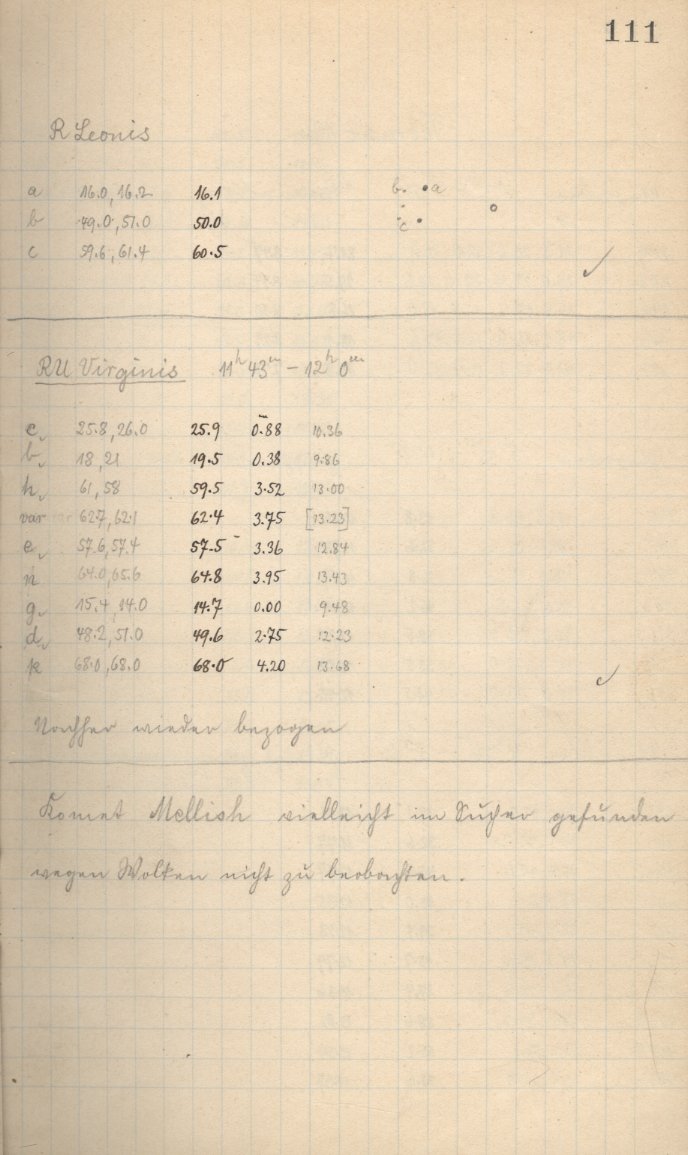 111
R Leonis
a 16.0, 16.2 16.1
b 49.0, 51.0 50.0
c 59.6, 61.4 60.5
b a
c
RU Virginis 11h 43m – 12h 0m
c 25.8, 26.0 25.9 0.88 10.36
b 18, 21 19.5 0.38 9.86
h 61, 58 59.5 3.52 13.00
var 62.7, 62.1 62.4 3.75 [13.23]
e 57.6, 57.4 57.5 3.36 12.84
n 64.0, 65.6 64.8 3.95 13.43
g 15.4, 14.0 14.7 0.00 9.48
d 48.2, 51.0 49.6 2.75 12.23
k 68.0, 68.0 68.0 4.20 13.68
Nachher wieder bezogen
Komet Mellish vielleicht im Sucher gefunden
wegen Wolken nicht zu beobachten.